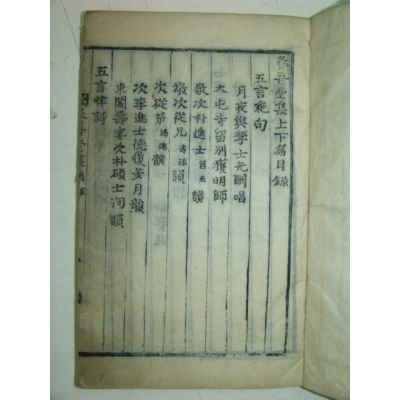 堂集上下篇目錄
五言絶句
月夜與李士光酬唱
大屯寺留別獲明師
敬次朴進士韻
敬次從兄韻
次從弟韻
次李進士德復安月韻
東閣壽宴次朴碩士洵韻
五言律詩